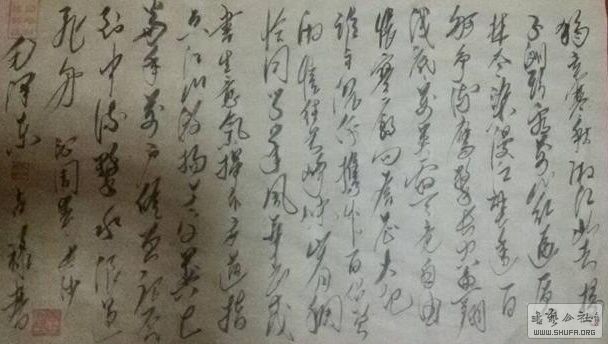 独立寒秋湘江北去橘
子洲头看万山红遍层
林尽染漫江碧透百
舸争流鹰击长空鱼翔
浅底万类霜天竞自由
怅寥廓问苍茫大地
谁主沉浮携来百侣曾
游忆往昔峥嵘岁月稠
恰同学少年风华正茂
书生意气挥斥方遒指
点江山激扬文字粪土
当年万户侯曾记否
到中流击水浪遏
飞舟 沁园春 长沙
毛泽东 书
书艺公社
WWW.SHUFA.ORG